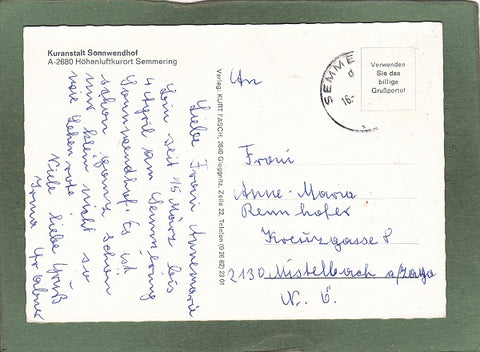 Kuranstalt Sonnwendhof
A-2680 Höhenluftkurort Semmering
Liebe Frau Annemarie
bin seit 15 März bis
4 April am Semmering
Sonnwendhof. Es ist
schon ganz schön
nur klein nicht so
wie
Viele liebe Grüß
Irma
Verlag: KURT FASCH, 2640 Gloggnitz, Zeile 22, Telefon (0 26 62) 23 01
SEMME
d
16.-
Verwenden
Sie das
billige
Grußporto!
An
Frau
Anne-Maria
Rennhofer
Kreuzgasse 8
2130 Mistelbach a/Zaya
N. Ö.